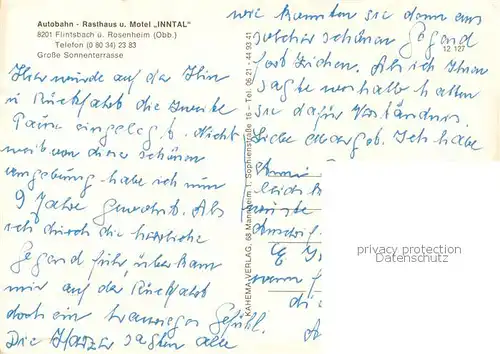 Autobahn - Rasthaus u. Motel „INNTAL"
8201 Flintsbach ü. Rosenheim (Obb.)
Telefon (0 80 34) 23 83
Große Sonnenterrasse
Hier wurde auf der Hin
u Rückfahrt die zweite
Pause eingelegt. Nicht
weit von dieser schönen
umgebung habe ich nun
9 Jahre gewohnt. Als
ich durch die herrliche
Gegend fuhr, überkam
mir auf der Rückfahrt
doch ein trauriges Gefühl.
Die sagten alle
wie konnten sie denn aus
solcher schönen Gegend
fort ziehen. Als ich Ihnen
sagte weshalb hatten
sie dafür Verständnis.
Liebe Ich habe
12 127
KAHEMA-VERLAG, 68 Mannheim 1, Sophienstraße 16 - Tel. 06 21 - 44 93 41
privacy protection
Datenschutz